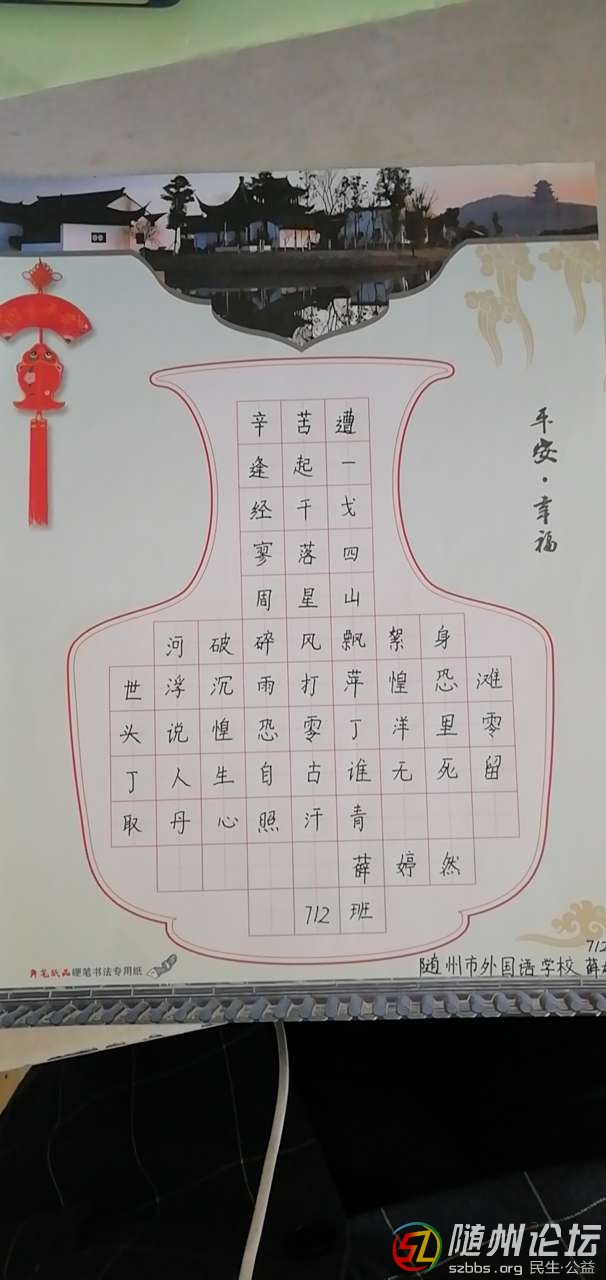 辛苦遭
逢起一
经干戈
寥落四
周星山
河破碎风飘絮身
世浮沉雨打萍惶恐滩
头说惶恐零丁洋里零
丁人生自古谁无死留
取丹心照汗青
薛婷然
712班
平安·幸福
奔笔纸品 硬笔书法专用纸
712
随州市外国语学校 薛
随州论坛
szbbs.org 民生·公益